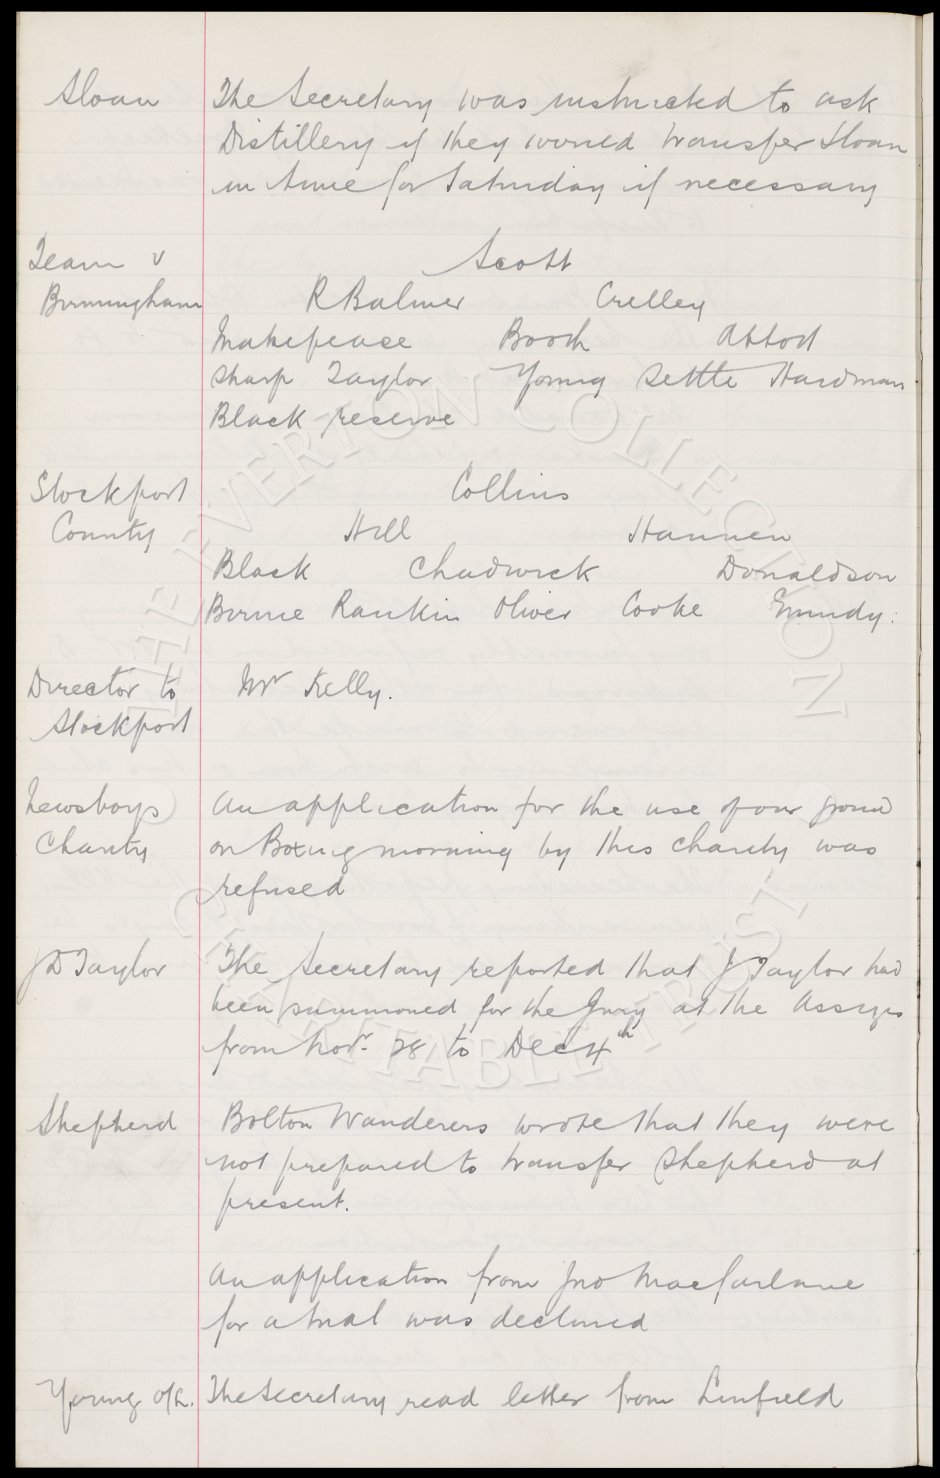 Sloan
The Secretary was instructed to ask
Distillery if they would transfer Sloan
in time for Saturday if necessary
Team v
Birmingham
Scott
R Balmer Crelley
Makepeace Booth Abbott
Sharp Taylor Young Settle Hardman
Black reserve
Stockport
County
Collins
Hill Hannen
Black Chadwick Donaldson
Birnie Rankin Oliver Cooke Grundy.
Director to
Stockport
Mr Kelly.
Newsboys
Charity
An application for the use of our ground
on Boxing morning by this charity was
refused
J D Taylor
The Secretary reported that J Taylor had
been summoned for the Jury at the Assizes
from Novr. 28 to Dec 4th
Shepherd
Bolton Wanderers wrote that they were
not prepared to transfer Shepherd at
present.
An application from Jno Macfarlane
for a trial was declined
Young
The Secretary read letter from Linfield
THE EVERTON COLLECTION
CHARITABLE TRUST